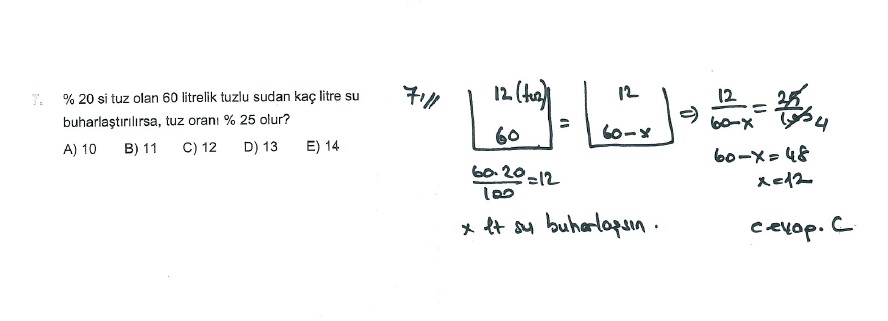 7. % 20 si tuz olan 60 litrelik tuzlu sudan kaç litre su
buharlaştırılırsa, tuz oranı % 25 olur?
A) 10 B) 11 C) 12 D) 13 E) 14
7.// 12 (tuz) 12 ⇒ 12/60-x = 25/100 4
60 = 60-x
60-x = 48
60.20/100 = 12
x = 12
x lt su buharlaşsın.
cevap. C